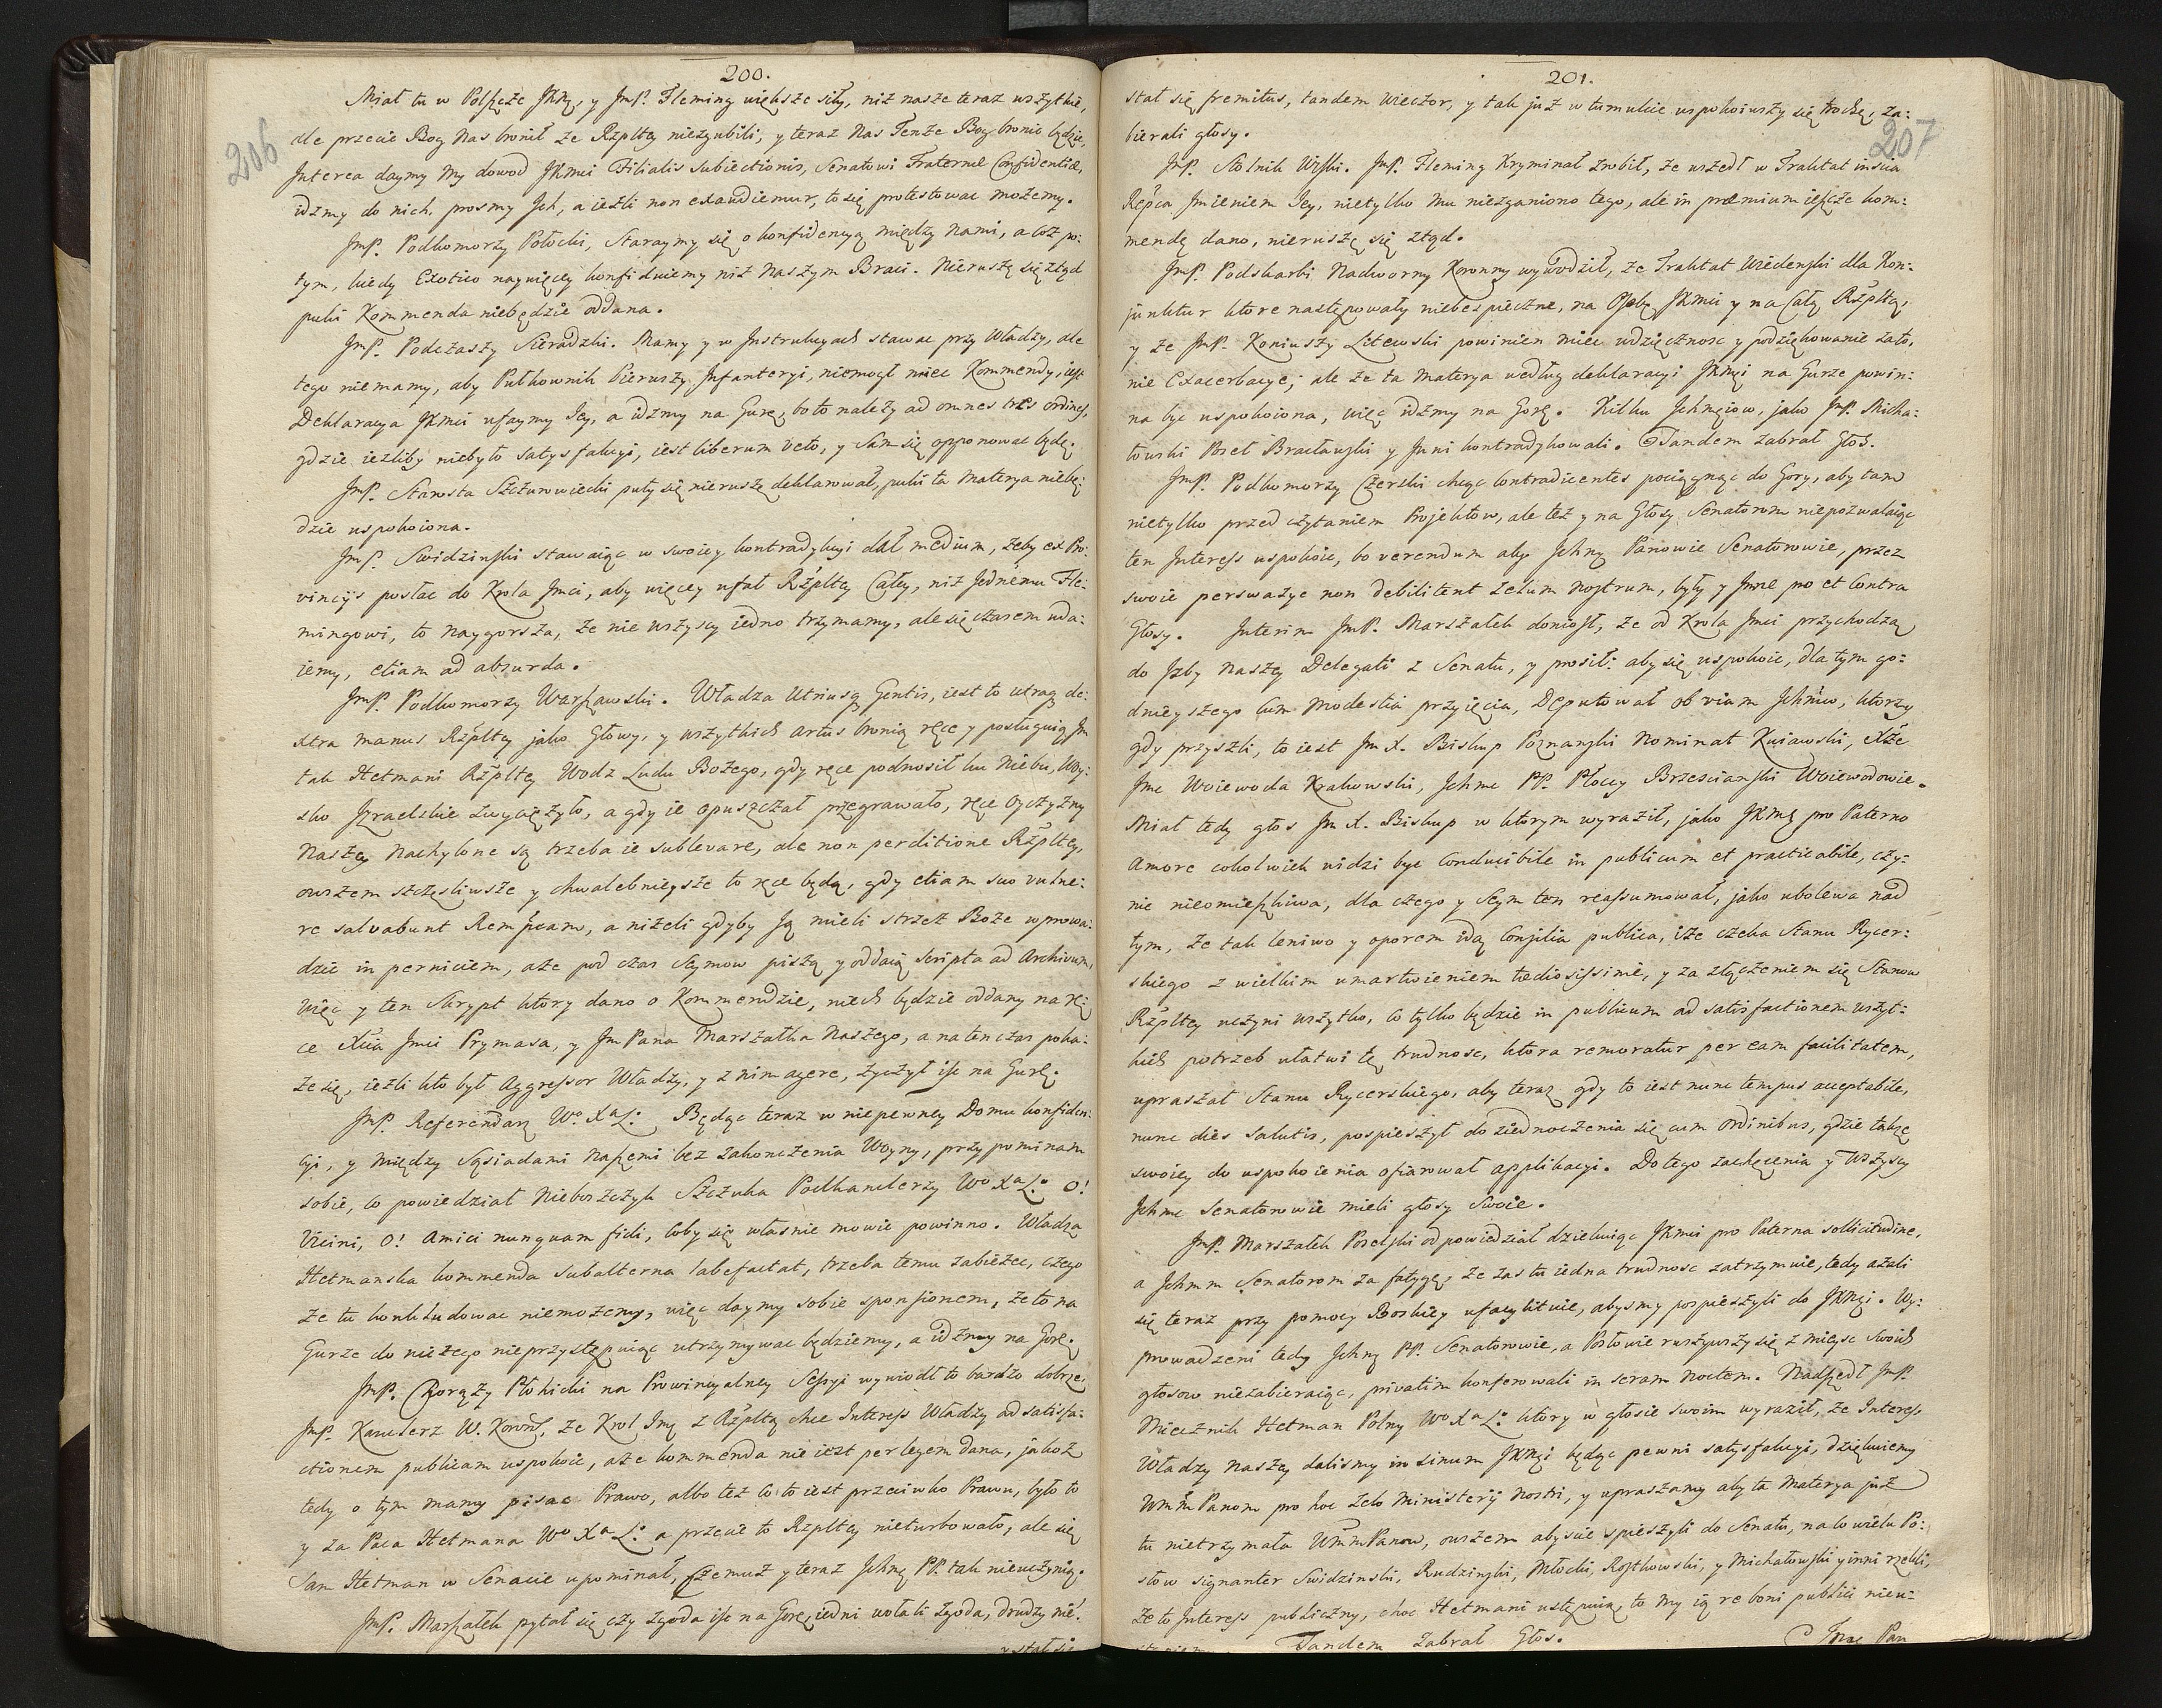 200.
206
Miał tu w Polszcze JKMć, y JmP. Fleming większe siły, niż nasze teraz wszytkie,
ale przecie Bog nas bronił że Rzpltey niezgubili, y teraz nas Tenże Bog bronic będzie,
Interea daymy My dowod JKMci Filialis subiectionis, Senatowi Fraternæ Confidentiæ,
idzmy do nich, prosmy Jch, a ieżli non exaudiemur, to się protestowac możemy.
JmP. Podkomorzy Połocki, Staraymy się o konfidencyą między nami, a coż po:
tym, kiedy Exotico naywięcey konfiduiemy niż naszym Braci. Nieruszę się ztąd
puki Kommenda niebędzie oddana.
JmP. Podczaszy Sieradzki. Mamy y w Jnstrukcyach stawac przy Władzy, ale
tego niemamy, aby Pułkownik Pierwszy Jnfanteryi, niemogł miec Kommendy, iest
Deklaracya JKMci ufaymy Jey, a idzmy na Gurę, bo to należy ad omnes tres ordines,
gdzie ieżliby niebyło satysfakcyi, iest liberum Veto, y Sam się opponowac będę.
JmP. Starosta Szczurowiecki puty się nieruszę deklarował, puki ta Materya niebę:
dzie uspokoiona.
JmP. Swidzinski stawaiąc w swoiey kontradykcyi dał medium, żeby ex Pro:
vincijs posłac do Krola Jmci, aby więcey ufał Rzpltey Całey, niż Jednemu Fle:
mingowi, to naygorsza, że nie wszyscy iedno trzymamy, ale się czasem uda:
iemy, etiam ad absurda.
JmP. Podkomorzy Warszawski. Władza Utriusq Gentis, iest to utraq de:
xtra manus Rzpltey jako Głowy, y wszytkich artus bronią ręce y posługuią Jm
tak Hetmani Rzpltey Wodz Ludu Bożego, gdy ręce podnosił ku Niebu, Woy:
sko Jzraelskie zwyciężyło, a gdy ie opuszczał przegrawało, ręce Oyczyzny
Naszey Nachylone są trzeba ie sublevare, ale non perditione Rzpltey,
owszem szczęsliwsze y chwalebnieysze to ręce będą, gdy etiam suo vulne:
re salvabunt Rempcam, a niżeli gdyby Ją mieli strzeż Boże wprowa:
dzic in perniciem, aże pod czas Seymow piszą y oddaią scripta ad Archivum,
więc y ten Skrypt ktory dano o Kommendzie, niech będzie oddany na rę:
ce Xcia Jmci Prymasa, y JmPana Marszałka Naszego, a natenczas poka:
że się, ieżli kto był Aggressor Władzy, y z nim agere, życzył isc na Gurę.
JmP. Referendarz Wo Xa Lo. Będąc teraz w niepewney Domu konfiden:
cyi, y między Sąsiadami Naszemi bez zakonczenia Woyny, przypominam
sobie, co powiedział Nieboszczyk Szczuka Podkanclerzy Wo Xa Lo O!
Vicini, O! Amici nunquam fidi, coby się własnie mowic powinno. Władzą
Hetmanska kommenda subalterna labefactat, trzeba temu zabieżec, czego
że tu konkludowac niemożemy, więc daymy sobie sponsionem, że to na
Gurze do niczego nieprzystępuiąc utrzymywac będziemy, a idzmy na Gorę.
JmP. Chorąży Płokicki na Prowincyalney Sessyi wywiodł to bardzo dobrze,
JmP. Kanclerz W. Koronl, że Krol Jmć z Rzpltą chce Interess Władzy ad satisfa:
ctionem publicam uspokoic, aże kommenda nie iest per legem dana, jakoż
tedy o tym mamy pisac Prawo, albo też co to iest przeciwko Prawu, było to
y za Paca Hetmana Wo Xa Lo a przecie to Rzpltey nieturbowało, ale się
Sam Hetman w Senacie upominał, Czemuż y teraz Jchmć PP. tak nieuczynią.
JmP. Marszałek pytał się czy zgoda isc na Gorę, iedni wołali zgoda, drudzy nie.
y stał się
201.
207
stał się fremitus, tandem wieczor, y tak już w tumulcie uspokoiwszy się trochę, za:
bierali głosy.
JmP. Stolnik Wisski. JmP. Fleming Kryminał zrobił, że wszedł w Traktat inscia
Repca Jmieniem Jey, nietylko mu niezganiono tego, ale in præmium ieszcze kom:
mendę dano, nieruszę się ztąd.
JmP. Podskarbi Nadworny Koronny wywodził, że Traktat Wiedenski dla Kon:
junktur ktore następowały niebezpieczne, na Osobę JKMci y na Całą Rzpltą,
y że JmP. Koniuszy Litewski powinien miec wdzięcznosc y podziękowanie zato,
nie Exacerbacye; ale że ta Materya według deklaracyi JKMci na Gurze powin:
na byc uspokoiona, więc idzmy na Gorę. Kilku Jchmciow, jako JmP. Micha:
łowski Poseł Bracławski y Jnni kontradykowali. Tandem zabrał Głos.
JmP. Podkomorzy Czerski chcąc Contradicentes pociągnąc do Gory, aby tam
nietylko przed czytaniem Projektow, ale też y na Głosy Senatorom niepozwalaiąc
ten Jnteress uspokoic, bo verendum aby Jchmć Panowie Senatorowie, przez
swoie perswazye non debilitent zelum nostrum, były y Jnne pro et Contra
Głosy. Jnterim JmP. Marszałek doniosł, że od Krola Jmci przychodzą
do Jzby naszey Delegati z Senatu, y prosił: aby się uspokoic, dla tym go:
dnieyszego cum modestia przyięcia, Deputował obviam Jchmciow, ktorzy
gdy przyszli, to iest JmX. Biskup Poznanski Nominat Kuiawski, Xże
Jmc Woiewoda Krakowski, Jchmc PP. Płocki Brzescianski Woiewodowie.
Miał tedy głos JmX. Biskup w ktorym wyraził, jako JKMć pro Paterno
Amore cokolwiek widzi byc Conducibile in publicum et practicabile, czy:
nie nieomieszkiwa, dla czego y Seym ten reassumował, jako ubolewa nad
tym, że tak leniwo y oporem idą Consilia publica, iże czeka Stanu Rycer:
skiego z wielkim umartwieniem tædiosissime, y za złączeniem się Stanow
Rzpltey uczyni wszytko, co tylko będzie in publicum ad satisfactionem wszyt:
kich potrzeb ułatwi tę trudnosc, ktora remoratur per eam facilitatem,
upraszał Stanu Rycerskiego, aby teraz gdy to iest nunc tempus acceptabile,
nunc dies salutis, pospieszył do ziednoczenia się cum Ordinibus, gdzie także
swoiey do uspokoienia ofiarował applikacyi. Do tego zachęcenia y Wszyscy
Jchmc Senatorowie mieli głosy Swoie.
JmP. Marszałek Poselski odpowiedział dziekuiąc JKMci pro Paterna sollicitudine,
a Jchmm Senatorom za fatygę, że zaś tu iedna trudnosc zatrzymuie, tedy azali
się teraz przy pomocy Boskiey ufacylituie, abysmy pospieszyli do JKMci. Wy:
prowadzeni tedy Jchmć PP. Senatorowie, a Posłowie ruszywszy się z mieysc Swoich
głosow niezabieraiąc, privatim konferowali in seram noctem. Nadszedł JmP.
Miecznik Hetman Polny Wo Xa Lo ktory w głosie swoim wyraził, że Interess
Władzy Naszey dalismy in sinum JKMci będąc pewni satysfakcyi, dziękuiemy
WmmPanom pro hoc zelo Ministerij Nostri, y upraszamy aby ta Materya już
tu nietrzymała WmmPanow, owszem abyscie spieszyli do Senatu, na co wielu Po:
słow signanter Swidzinski, Rudzinski, Młocki, Rostkowski, y Michałowski y inni rzekli,
że to Jnteress publiczny, choc Hetmani ustępuią, to My ią re boni publici nieu:
Tandem zabrał Głos. Jmc Pan